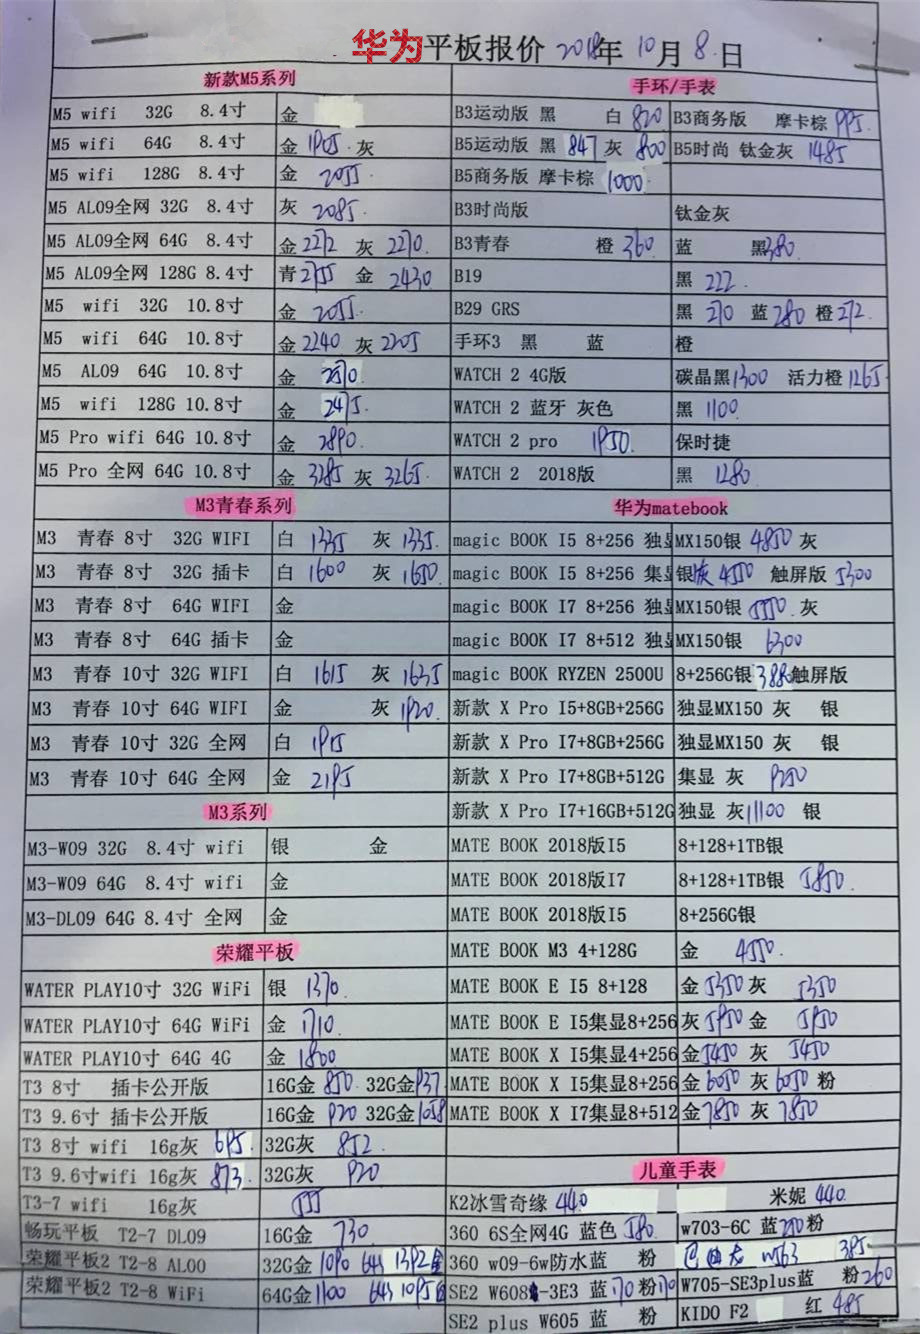 华为平板报价 2018年 10月 8日
新款M5系列
M5 wifi 32G 8.4寸 金
M5 wifi 64G 8.4寸 金 1905 灰
M5 wifi 128G 8.4寸 金 2055
M5 AL09全网 32G 8.4寸 灰 2085
M5 AL09全网 64G 8.4寸 金2272 灰 2270
M5 AL09全网 128G 8.4寸 青2755 金 2430
M5 wifi 32G 10.8寸 金 2055
M5 wifi 64G 10.8寸 金2240 灰2205
M5 AL09 64G 10.8寸 金
M5 wifi 128G 10.8寸 金 2475
M5 Pro wifi 64G 10.8寸 金 2890
M5 Pro 全网 64G 10.8寸 金 3285 灰 3265
M3青春系列
M3 青春 8寸 32G WIFI 白 1335 灰 1335
M3 青春 8寸 32G 插卡 白 1600 灰 1650
M3 青春 8寸 64G WIFI 金
M3 青春 8寸 64G 插卡 金
M3 青春 10寸 32G WIFI 白 1615 灰 1635
M3 青春 10寸 64G WIFI 金 灰 1920
M3 青春 10寸 32G 全网 白 1915
M3 青春 10寸 64G 全网 金 2195
M3系列
M3-W09 32G 8.4寸 wifi 银 金
M3-W09 64G 8.4寸 wifi 金
M3-DL09 64G 8.4寸 全网 金
荣耀平板
WATER PLAY10寸 32G WiFi 银 1370
WATER PLAY10寸 64G WiFi 金 1710
WATER PLAY10寸 64G 4G 金 1800
T3 8寸 插卡公开版 16G金 850 32G金937
T3 9.6寸 插卡公开版 16G金 920 32G金1058
T3 8寸 wifi 16g灰 695 32G灰 852
T3 9.6寸wifi 16g灰 873 32G灰 920
T3-7 wifi 16g灰 555
畅玩平板 T2-7 DL09 16G金 730
荣耀平板2 T2-8 AL00 32G金1090 64G 1392金
荣耀平板2 T2-8 WiFi 64G金1100 64G 1095金
手环/手表
B3运动版 黑 白 820 B3商务版 摩卡棕 995
B5运动版 黑 847 灰 800 B5时尚 钛金灰 1485
B5商务版 摩卡棕 1000
B3时尚版 钛金灰
B3青春 橙 360 蓝 黑380
B19 黑 222
B29 GRS 黑 270 蓝 280 橙272
手环3 黑 蓝 橙
WATCH 2 4G版 碳晶黑1300 活力橙1265
WATCH 2 蓝牙 灰色 黑 1100
WATCH 2 pro 1950 保时捷
WATCH 2 2018版 黑 1280
华为matebook
magic BOOK I5 8+256 独显MX150银 4850 灰
magic BOOK I5 8+256 集显银灰 4550 触屏版 5300
magic BOOK I7 8+256 独显MX150银 5550 灰
magic BOOK I7 8+512 独显MX150银 6300
magic BOOK RYZEN 2500U 8+256G银3880触屏版
新款 X Pro I5+8GB+256G 独显MX150 灰 银
新款 X Pro I7+8GB+256G 独显MX150 灰 银
新款 X Pro I7+8GB+512G 集显 灰 9250
新款 X Pro I7+16GB+512G 独显 灰11100 银
MATE BOOK 2018版I5 8+128+1TB银
MATE BOOK 2018版I7 8+128+1TB银 5850
MATE BOOK 2018版I5 8+256G银
MATE BOOK M3 4+128G 金 4550
MATE BOOK E I5 8+128 金 5350 灰 5350
MATE BOOK E I5集显8+256 灰5950 金 5950
MATE BOOK X I5集显4+256 金5450 灰 5450
MATE BOOK X I5集显8+256 金6050 灰6050 粉
MATE BOOK X I7集显8+512 金7850 灰 7850
儿童手表
K2冰雪奇缘 440 米妮 440
360 6S全网4G 蓝色 580 w703-6C 蓝250粉
360 w09-6w防水蓝 粉 W563 385
SE2 W608-3E3 蓝170粉170 W705-SE3plus蓝 粉260
SE2 plus W605 蓝 粉 KIDO F2 红 485